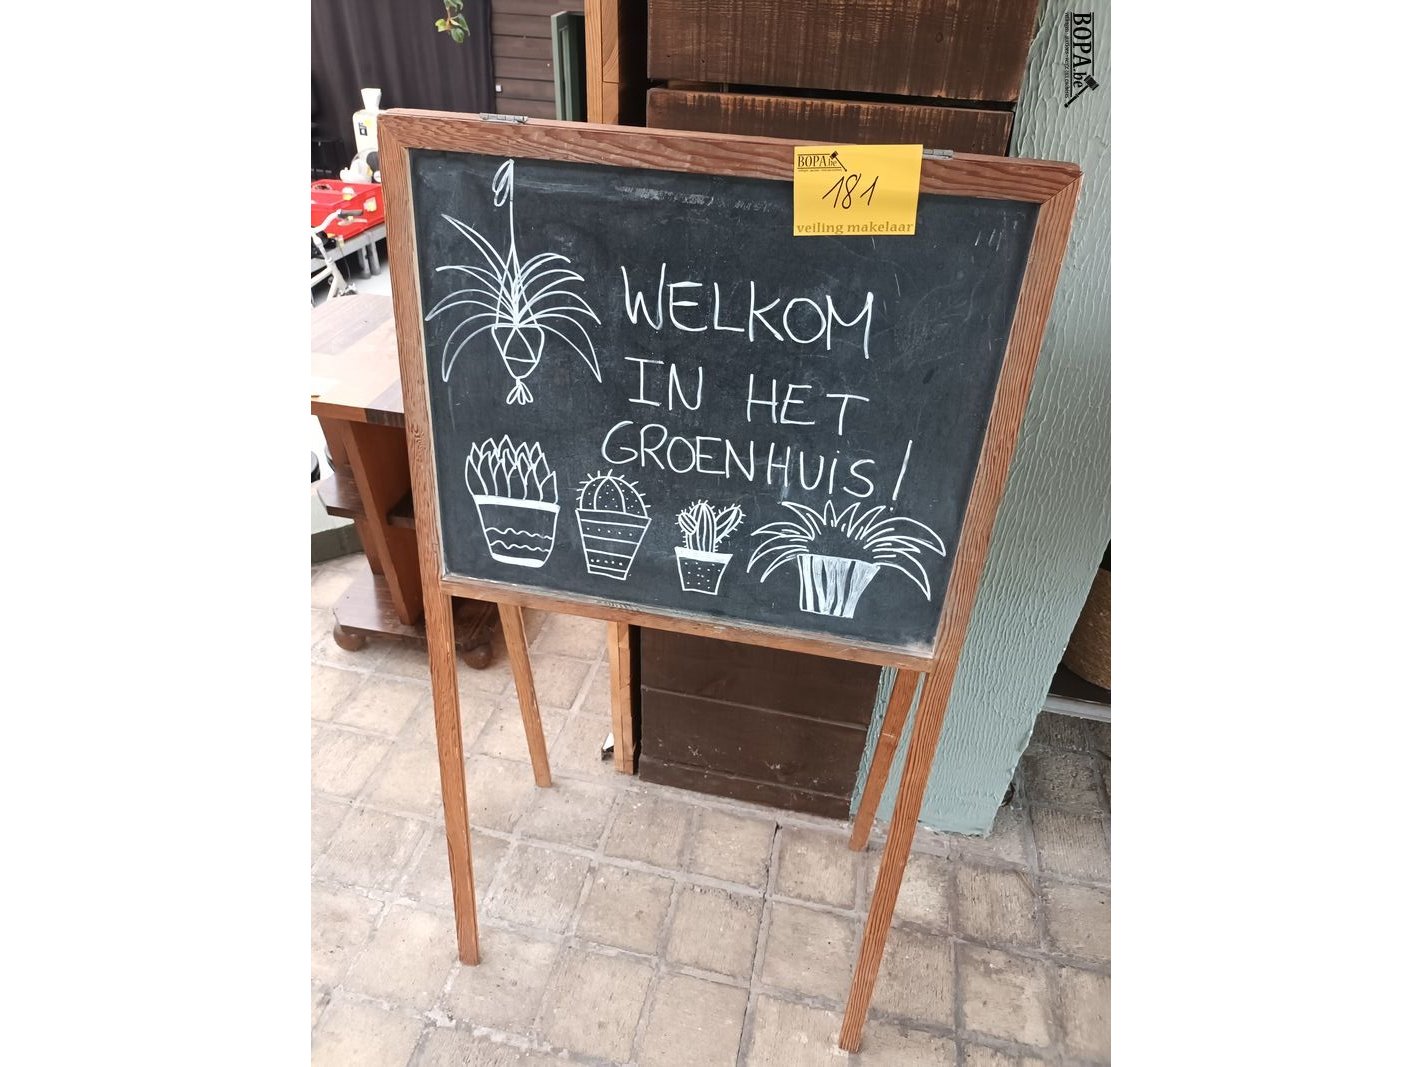 BOPA.be
BOPA.be
181
veiling makelaar
WELKOM
IN HET
GROENHUIS!